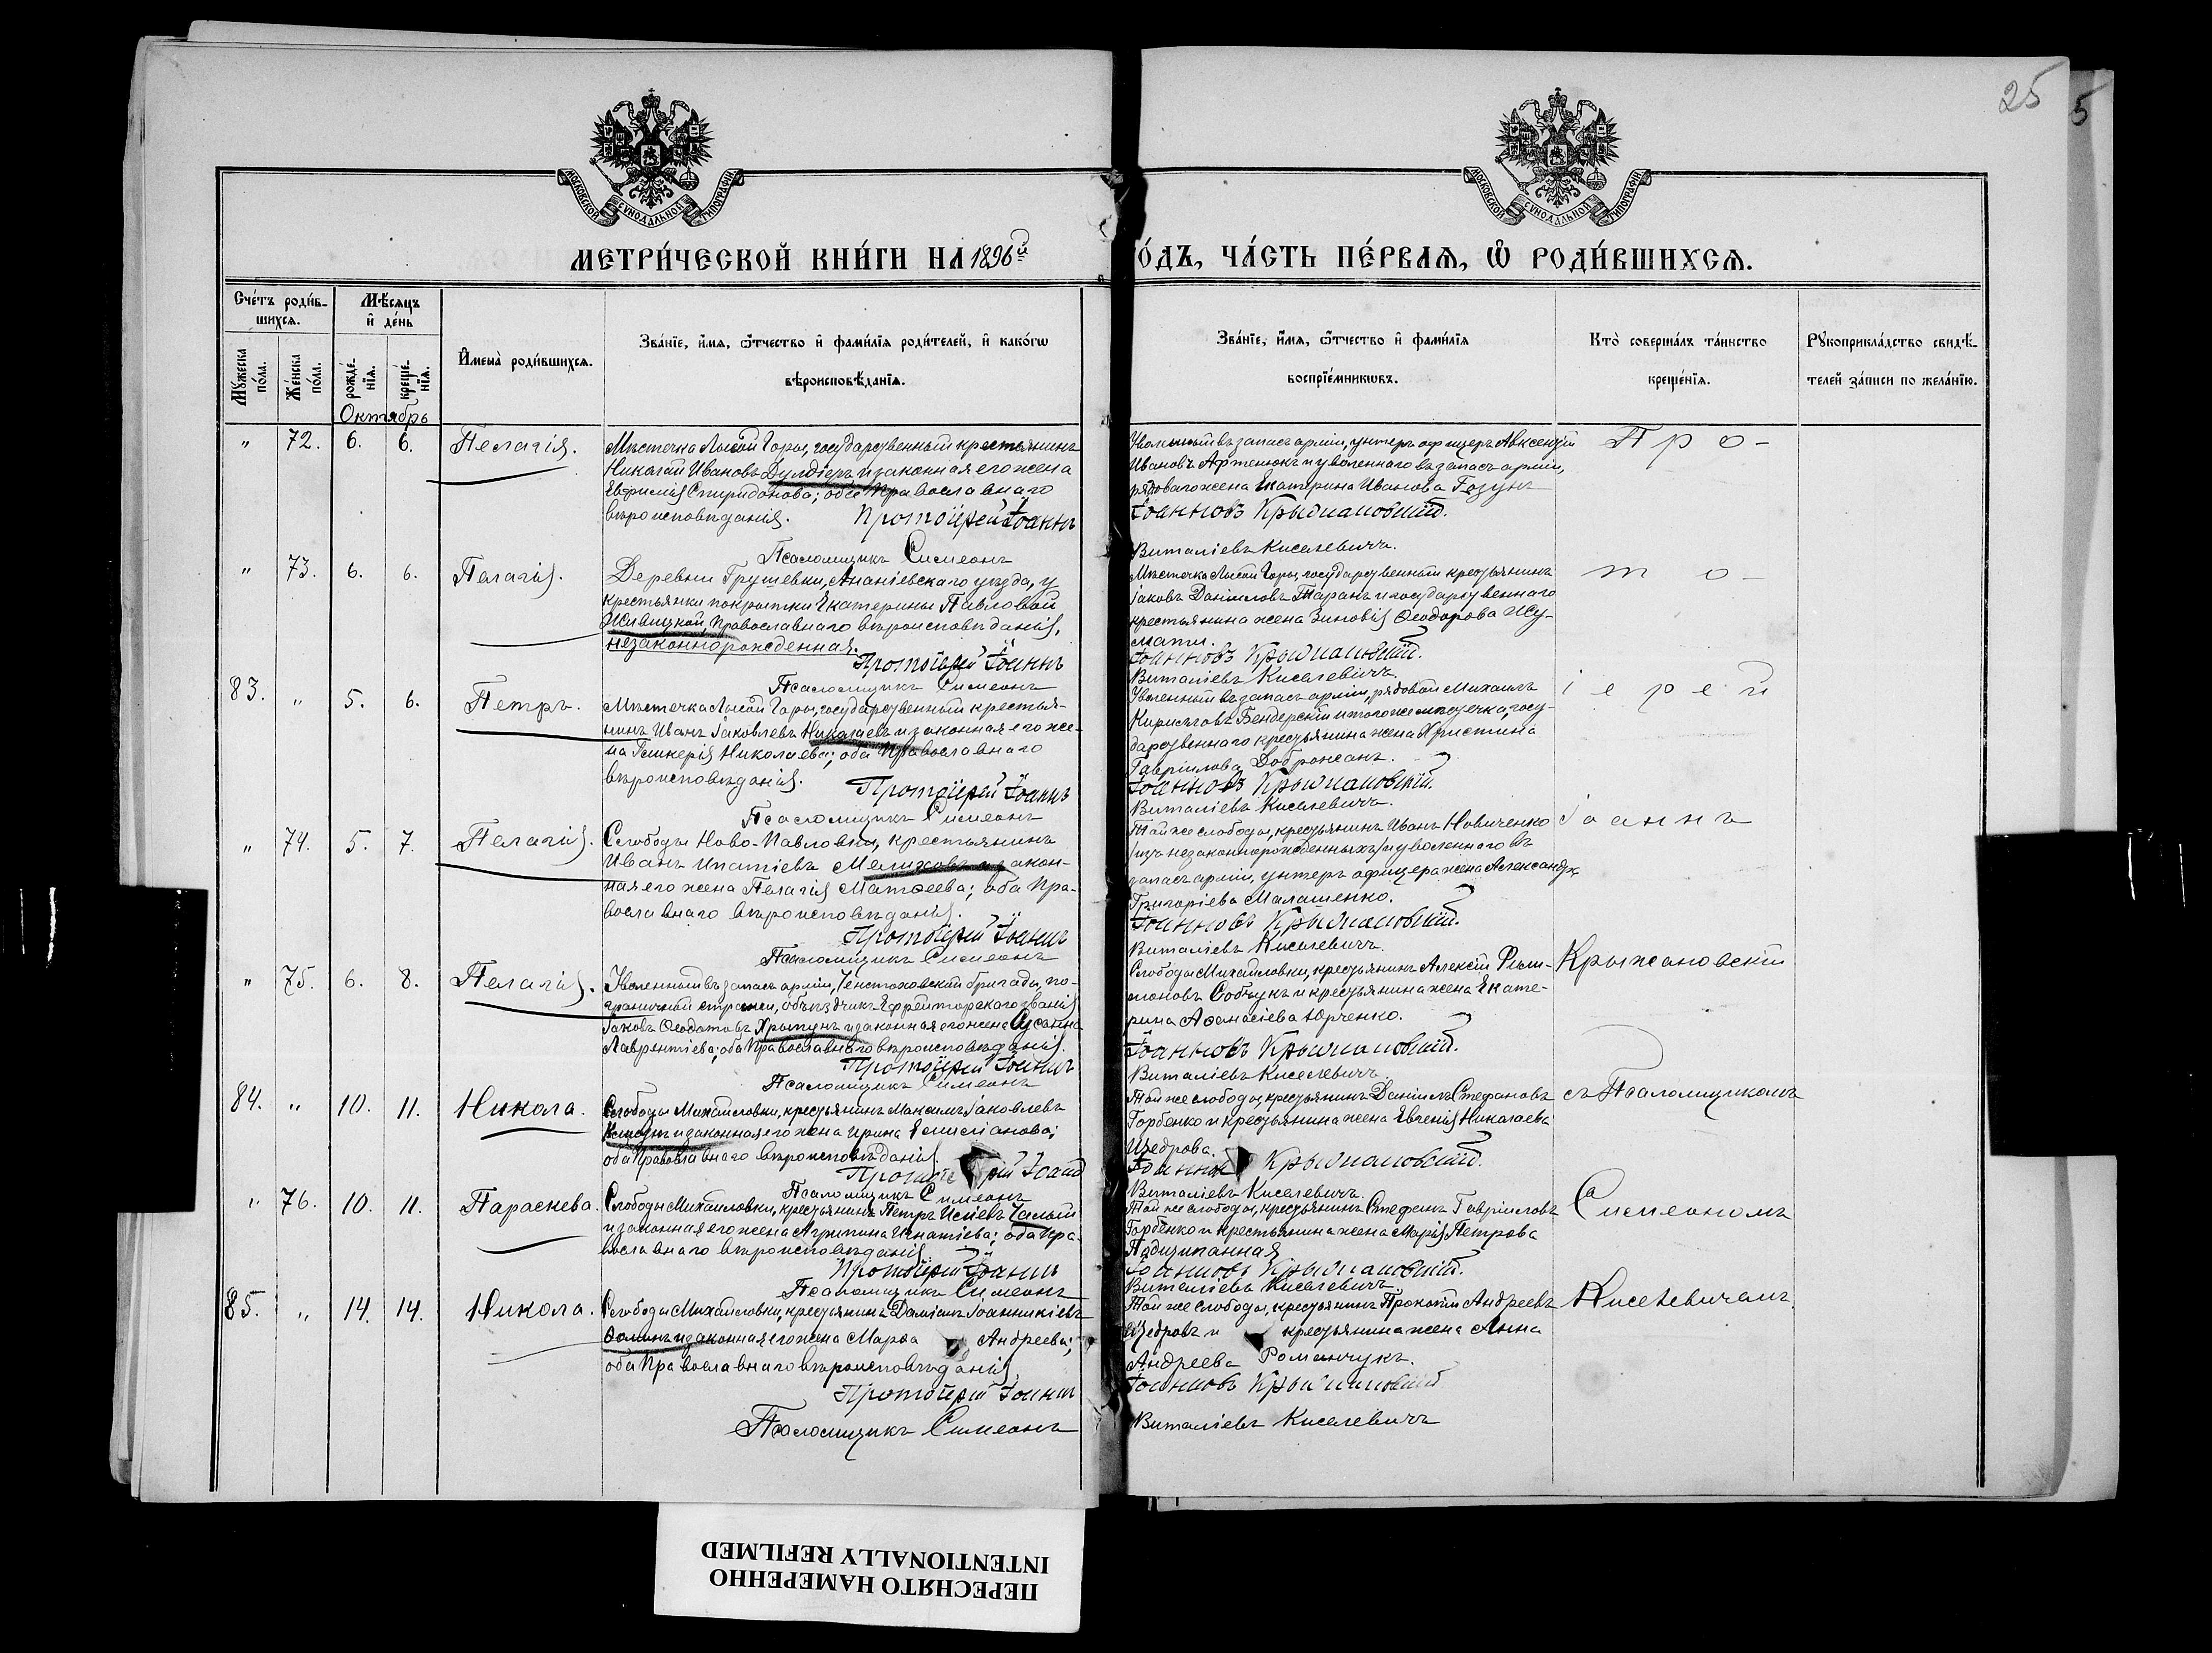 25
5
МОСКОВСКОЙ СѴНОДАЛЬНОЙ ТИПОГРАФІИ
МОСКОВСКОЙ СѴНОДАЛЬНОЙ ТИПОГРАФІИ
МЕТРИ́ЧЕСКОЙ КНИ́ГИ НА 1896й
ОДЪ, ЧА́СТЬ ПЕ́РВАѦ, Ѡ РОДИ́ВШИХСѦ.
Сче́тъ роди́вшихсѧ.
Мѣ́сѧцъ и҆ де́нь
Мꙋ́жеска по́ла.
Же́нска по́ла.
рожде́нїѧ.
креще́нїѧ.
И҆мена̀ роди́вшихсѧ.
Зва́нїе, и҆́мѧ, ѻ҆́тчество и҆ фами́лїѧ роди́телей, и҆ како́гѡ
вѣроисповѣ́данїѧ.
Зва́нїе, и҆́мѧ, ѻ҆́тчество и҆ фами́лїѧ
воспрїе́мникѡвъ.
Кто̀ соверша́лъ та́инство
креще́нїѧ.
Рꙋкоприкла́дство свидѣ́-
телей за́писи по жела́нїю.
Октябрь
" 72. 6. 6. Пелагія.
Мѣстечка Лысой Горы, государственный крестьянинъ
Николай Ивановъ Дулдіеръ и законная его жена
Евфимія Спиридонова; оба Православнаго
вѣроисповѣданія. Протоіерей Іоаннъ
Псаломщикъ Симеонъ
Уволенный въ запасъ арміи, унтеръ офицеръ Авксентій
Ивановъ Артенюкъ и уволеннаго въ запасъ арміи,
рядоваго жена Екатерина Иванова Гозунъ
Іоанновъ Крыжановскій.
Виталіевъ Киселевичъ.
Про-
" 73. 6. 6. Пелагія.
Деревни Грушевки, Ананіевскаго уѣзда, у
крестьянки покрытки Екатерины Павловой
Живицкой, Православнаго вѣроисповѣданія,
незаконнорожденная.
Протоіерей Іоаннъ
Псаломщикъ Симеонъ
Мѣстечка Лысой Горы, государственный крестьянинъ
Іаковъ Даніиловъ Таранъ и государственнаго
крестьянина жена Зиновія Ѳеодорова Шу-
мати.
Іоанновъ Крыжановскій.
Виталіевъ Киселевичъ.
то-
83. " 5. 6. Петръ.
Мѣстечка Лысой Горы, государственный крестья-
нинъ Иванъ Іаковлевъ Николаевъ и законная его же-
на Гликерія Николаева; оба Православнаго
вѣроисповѣданія.
Протоіерей Іоаннъ
Псаломщикъ Симеонъ
Уволенный въ запасъ арміи, рядовой Михаилъ
Кирилловъ Бендерскій и того же мѣстечка, госу-
дарственнаго крестьянина жена Христина
Гавріилова Доброжанъ.
Іоанновъ Крыжановскій.
Виталіевъ Киселевичъ.
іерей
" 74. 5. 7. Пелагія.
Слободы Ново-Павловки, крестьянинъ
Иванъ Ипатіевъ Мелиховъ и закон-
ная его жена Пелагія Матѳеева; оба Пра-
вославнаго вѣроисповѣданія.
Протоіерей Іоаннъ
Псаломщикъ Симеонъ
Той же слободы, крестьянинъ Иванъ Новиченко
/изъ незаконнорожденныхъ/ и уволеннаго въ
запасъ арміи, унтеръ офицера жена Александра
Григоріева Малашенко.
Іоанновъ Крыжановскій.
Виталіевъ Киселевичъ.
Іоаннъ
" 75. 6. 8. Пелагія.
Уволенный въ запасъ арміи, Ченстоховской бригады, по-
граничной стражи, объѣздчикъ Ефрейторскаго званія
Іаковъ Ѳеодотовъ Хрыпунъ и законная его жена Сусанна
Лаврентіева; оба Православнаго вѣроисповѣданія.
Протоіерей Іоаннъ
Псаломщикъ Симеонъ
Слободы Михайловки, крестьянинъ Алексій Фили-
моновъ Собчукъ и крестьянина жена Екате-
рина Аѳанасіева Юрченко.
Іоанновъ Крыжановскій.
Виталіевъ Киселевичъ.
Крыжановскій
84. " 10. 11. Никола.
Слободы Михайловки, крестьянинъ Максимъ Іаковлевъ
и законная его жена Ирина Емиліанова;
оба Православнаго вѣроисповѣданія.
Протоіерій Іоаннъ
Псаломщикъ Симеонъ
Той же слободы, крестьянинъ Даніилъ Стефановъ
Горбенко и крестьянина жена Евгенія Николаева
Щедрова.
Іоаннов Крыжановскій.
Виталіевъ Киселевичъ.
съ Псаломщикомъ
" 76. 10. 11. Параскева.
Слободы Михайловки, крестьянинъ Петръ Исаіевъ Чалый
и законная его жена Агрипина Игнатіева; оба Пра-
вославнаго вѣроисповѣданія.
Протоіерей Іоаннъ
Псаломщикъ Симеонъ
Той же слободы, крестьянинъ Стефанъ Гавріиловъ
Горбенко и крестьянина жена Марія Петрова
Подщипанная
Іоанновъ Крыжановскій.
Виталіевъ Киселевичъ
Симеономъ
85. " 14. 14. Никола.
Слободы Михайловки, крестьянинъ Даміанъ Іоанникіевъ
и законная его жена Марѳа Андреева;
оба Православнаго вѣроисповѣданія
Протоіерей Іоаннъ
Псаломщикъ Симеонъ
Той же слободы, крестьянинъ Прокопій Андреевъ
Щедровъ и крестьянина жена Анна
Андреева Романчукъ.
Іоанновъ Крыжановскій
Виталіевъ Киселевичъ
Киселевичемъ.
ПЕРЕСНЯТО НАМЕРЕННО
INTENTIONALLY REFILMED